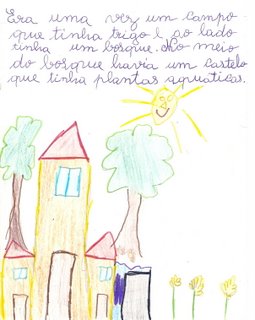 Era uma vez um campo
que tinha trigo e ao lado
tinha um bosque. No meio
do bosque havia um castelo
que tinha plantas aquáticas.